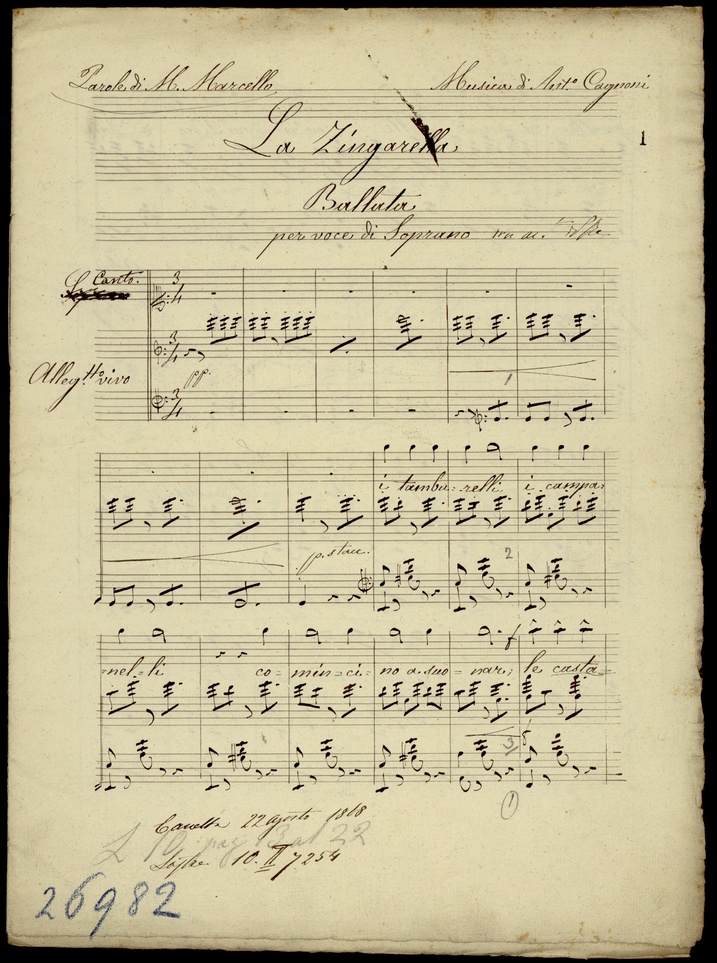 Parole di M. Marcello
Musica di Ant.º Cagnoni
1
La Zingarella
Ballata
per voce di Soprano
Canto.
3/4
Alleg.tto vivo
3/4
pp.
3/4
1
i tambu-relli i campa-
p. stacc.
2
-nel-li co-min-ci-no a suo-nar; le casta-
f
3
1
22 agosto 1868
10. II 7254
26982